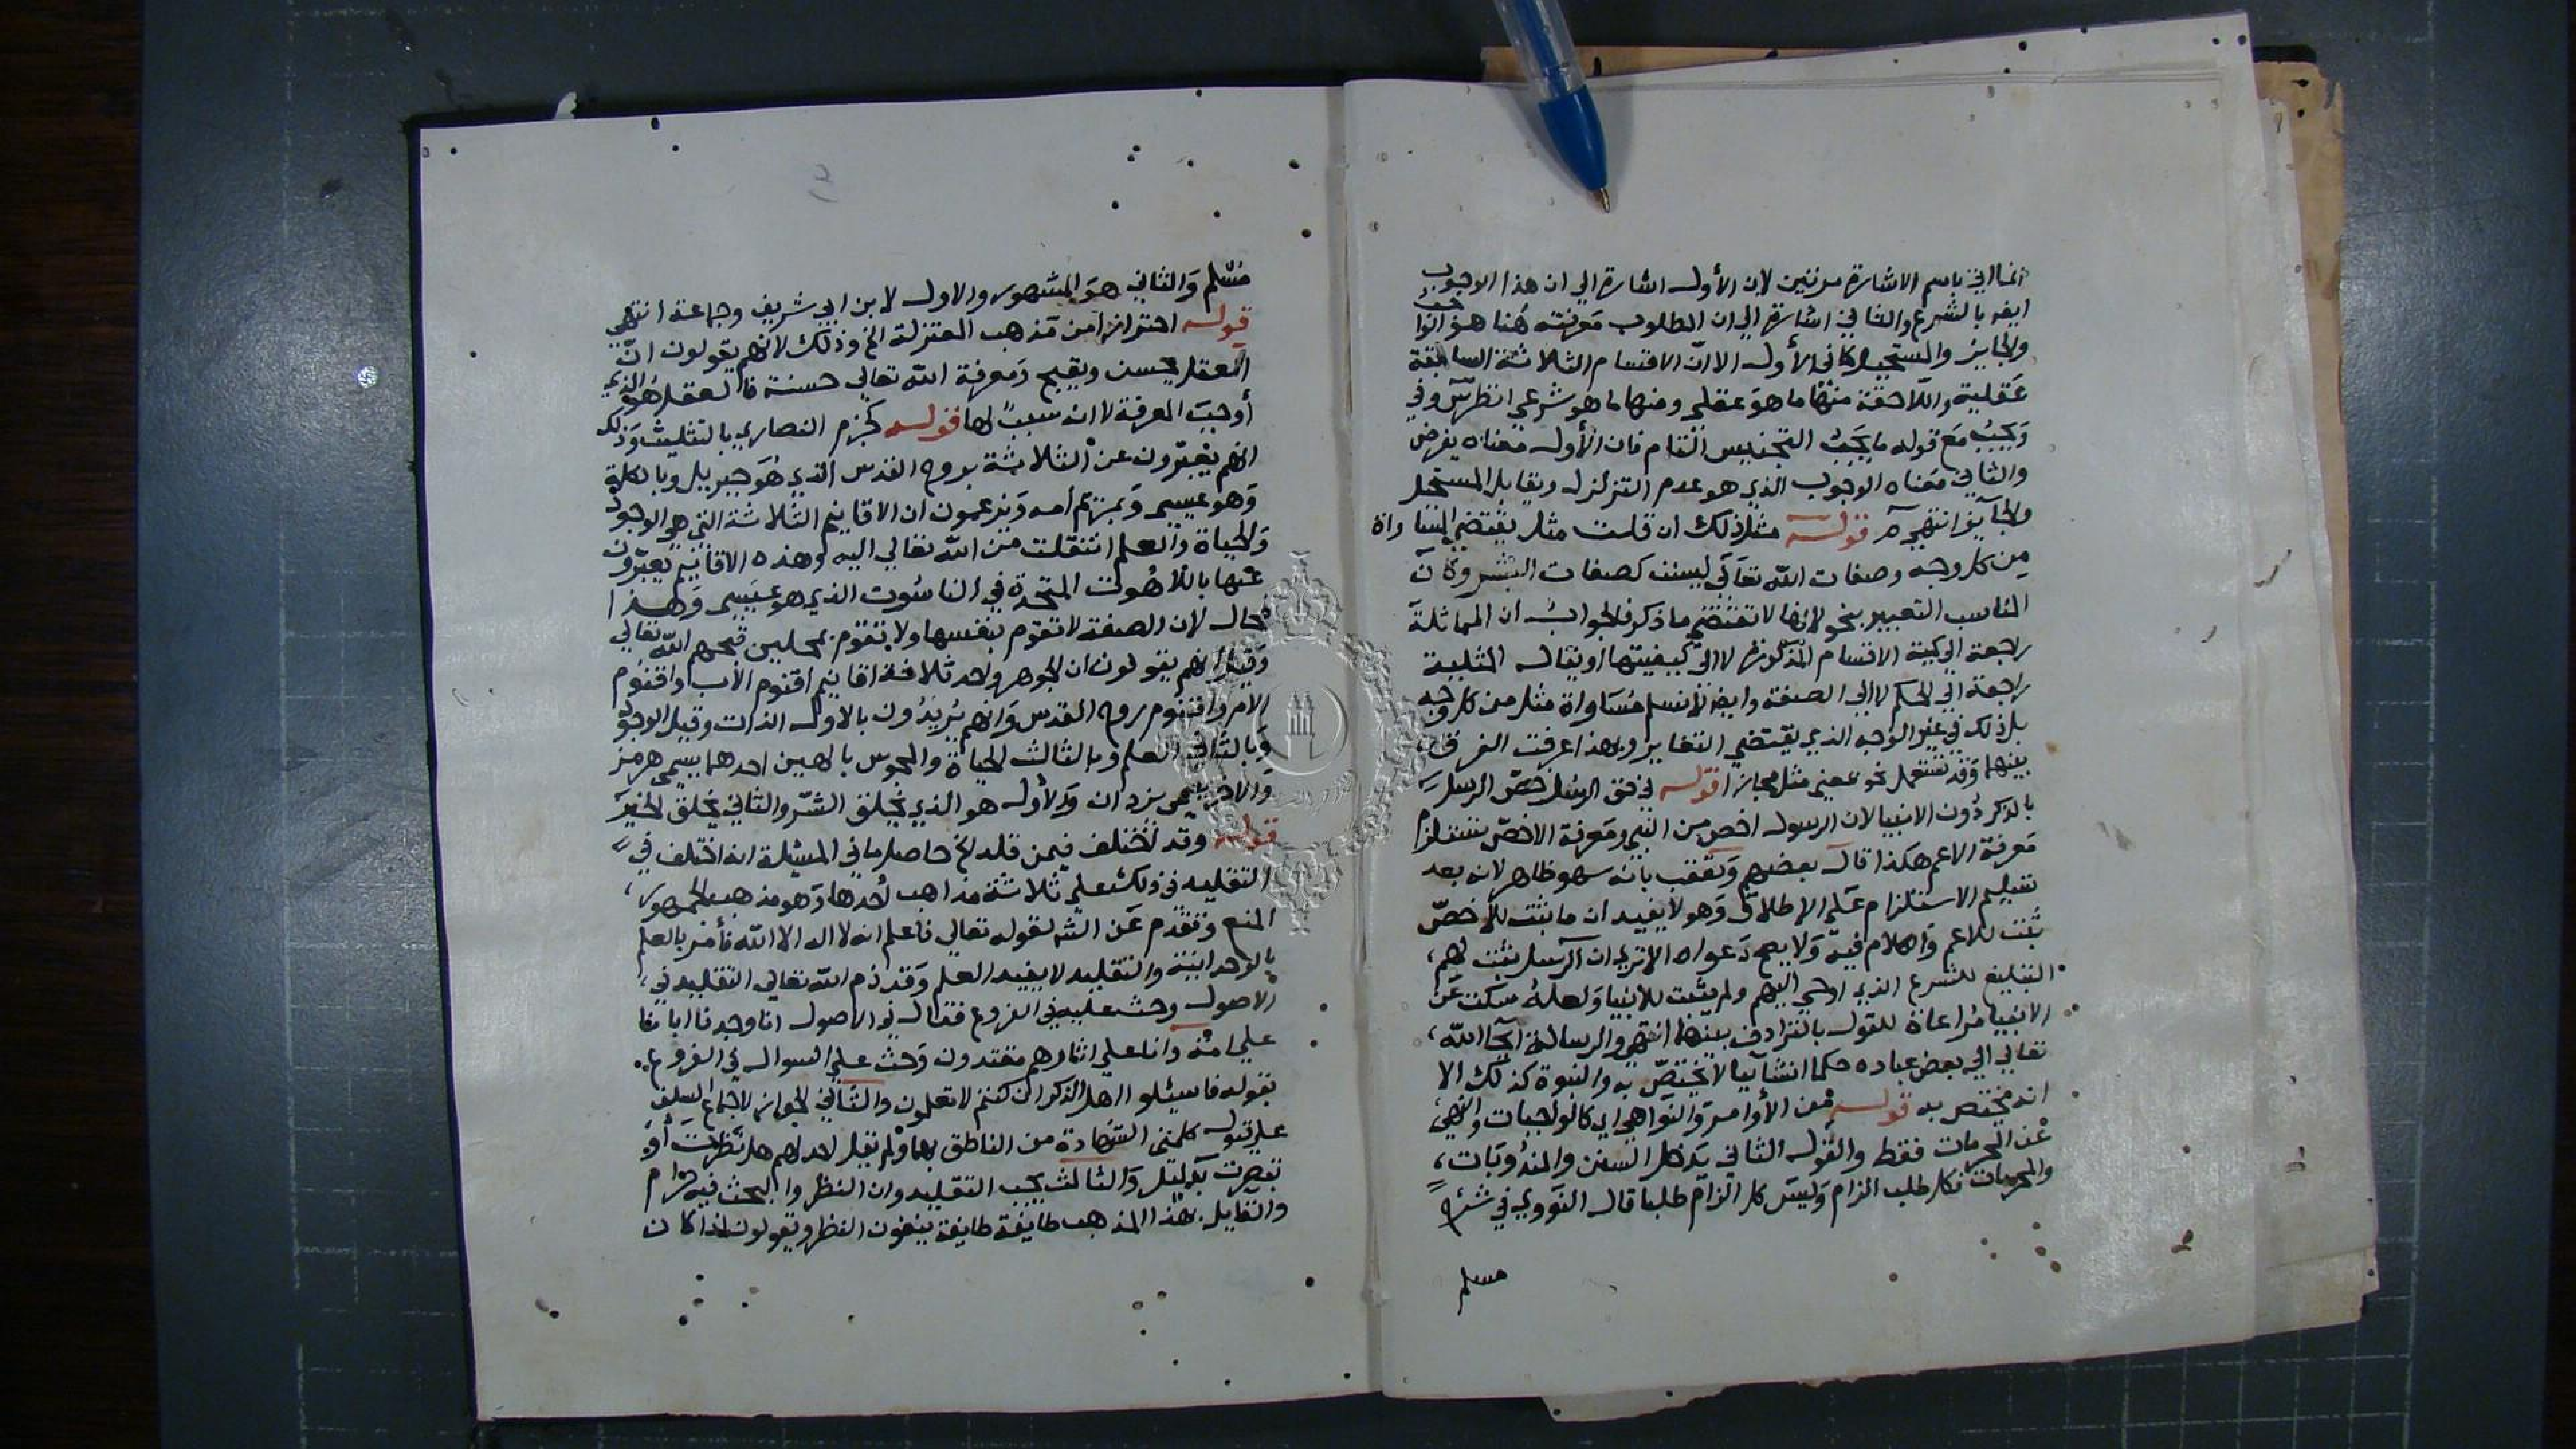 انما اتي باسم الاشارة مرتين لان الأول اشارة الي ان هذا الوجوب
ايضا بالشرع والثاني اشارة الي ان المطلوب معرفته هُنا هو
والجايز والمستحيل كما في الأول الا انّ الاقسام الثلاثة السابقة
عَقلية واللاحقة منها ما هوَ عقلي ومنها ما هو شرعي انظر س وفي
وَيَجبُ مَع قوله ما يجَبُ التجنيس التام فان الأول معناه يفرض
والثاني مَعناه الوجوب الذي هو عدم التزلزل ويقابل المستحيل
والجايز انتهي قوله مثل ذلك ان قلت مثل يقتضي المساواة
من كل وجه وصفات الله تعَالَي ليست كصفات البشر وكان
المناسب التعبير بنحو لانها لا تقتضي ما ذكر فالجواب ان المماثلة
راجعة الي كمية الاقسام المذكورة لا الي كيفيتها او يقال المثلية
راجعة الي الحكم لا الي الصفة وايضا لا نسلم مُسَاواة مثل من كل وجه
بل ذلك في غير الوجه الذي يقتضي التغاير وبهذا عرفت الفرق
بينهما وَقد تستعمل نحو بمعني مثل مجازا قوله في حق الرسل خصّ الرسل
بالذكر دُون الانبيا لان الرسول اخص من النبي ومَعرفة الاخصّ تستلزم
مَعرفة الاعم هكذا قال بعضهم وَتعقب بأنه سهو ظاهر لانه بعد
تسليم الاستلزام عَلي الإطلاق وَهو لا يفيد ان ما يثبت للأخصّ
يثبت للاعم والكلام فيه وَلا يصح دَعواه الا تري ان الرسل يثبت لهم
التبليغ للشرع الذي اوحي اليهم ولم يثبت للانبيا وَلعلهُ سكت عَن
الانبيا مُراعاة للقول بالترادف بينهما انتهي والرسالة ايحا الله
تعالي الي بعض عباده حكما انشائيا لا يختصّ به والنبوة كذلك الا
انه مختص به قوله من الأوامر وَالنواهي اي كالواجبات والنهي
عَن المحرمات فقط والقول الثاني يَدخل السنن والمندُوبَات
والمحرمات فكل طلب الزام وَليسَ كل الزام طلبا قال النَووي في شرح
مسلم
مُسلم وَالثاني هوَ المشهور والاول لابن ابي شريف وجماعة انتهي
قوله احترازا من مَذهب المعتزلة الخ وذلك لانهم يقولون انّ
العقل يحسن ويقبح وَمعرفة الله تعالي حسنة فالعقل هُو الذي
أوجبَ المعرفة لا انه سببٌ لها قوله كجزم النصاري بالتثليث وَذلك
انهم يعبّرون عن الثلاثة بروح القدس الذي هُوَ جبريل وبالكلمة
وَهو عيسي وَبمريم امه وَيزعمون ان الاقانيم الثلاثة التي هي الوجود
وَالحياة والعلم انتقلت من الله تعالي اليه وهذه الاقانيم يعبّرون
عنها باللاهوت المتحدة في الناسُوت الذي هو عيسي وَهذا
مُحال لان الصفة لا تقوم بنفسها ولا تقوم بمحلين قبحهم الله تعالي
وَقيل انهم يقولون ان الجوهر واحد ثلاثة اقانيم اقنوم الأب واقنُوم
الابن واقنُوم روح القدس وَانهم يُريدُون بالاول الذات وقيل الوجود
وَبالثاني العلم وبالثالث الحياة والمجوس بالهين احدهما يسمي هرمز
وَالاخر يسمي يزدان وَالأول هو الذي يخلق الشرّ والثاني يخلق الخيرَ
قوله وقد اختلف فيمن قلد الخ حاصل ما في المسئلة انه اختلف في
التقليد في ذلك علي ثلاثة مذاهب أحدها وَهو مذهب الجمهور
المنع وَتقدم عَن الشه لقوله تعالي فاعلم انه لا اله الا الله فأمر بالعلم
بالوحدانية والتقليد لا يفيد العلم وَقد ذم الله تعالي التقليد في
الاصول وحث عليه في الفروع فقال في الاصول انا وجدنا اباءنا
علي امة وانا علي اثارهم مقتدون وَحث علي السوال في الفروع
بقوله فاسئلوا اهل الذكر ان كنتم لا تعلمون والثاني الجواز لاجماع السلف
علي قبول كلمتي الشهادة من الناطق بهما ولم يقل احد لهم هل نظرتَ أوَ
تبصرت بدليل وَالثالث يجب التقليد وان النظر والبحث فيه حرام
والقايل بهذا المذهب طايفة طايفة ينفون النظر ويقولون اذا كان